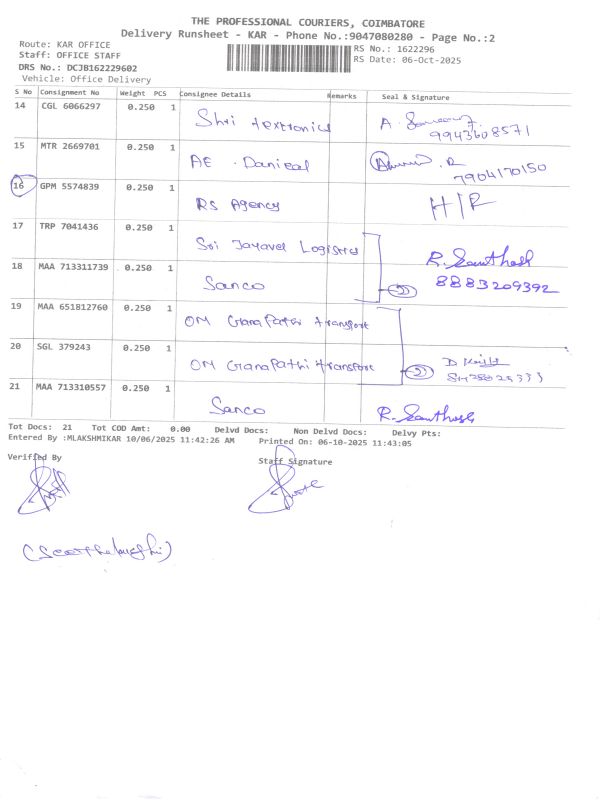 THE PROFESSIONAL COURIERS, COIMBATORE
Delivery Runsheet - KAR - Phone No.:9047080280 - Page No.:2
Route: KAR OFFICE
Staff: OFFICE STAFF
DRS No.: DCJB162229602
Vehicle: Office Delivery
RS No.: 1622296
RS Date: 06-Oct-2025
S No Consignment No Weight PCS Consignee Details Remarks Seal & Signature
14 CGL 6066297 0.250 1 Shri textronics A.
9943608571
15 MTR 2669701 0.250 1 AE . Danieal R
7904170150
16 GPM 5574839 0.250 1 RS Agency H/R
17 TRP 7041436 0.250 1 Sri Jayavel Logistics R. Santhosh
18 MAA 713311739 0.250 1 Sanco 2 8883209392
19 MAA 651812760 0.250 1 OM GanaPathi transport
20 SGL 379243 0.250 1 OM GanaPathi transport 2 D
21 MAA 713310557 0.250 1 Sanco R. Santhosh
Tot Docs: 21 Tot COD Amt: 0.00 Delvd Docs: Non Delvd Docs: Delvy Pts:
Entered By :MLAKSHMIKAR 10/06/2025 11:42:26 AM Printed On: 06-10-2025 11:43:05
Verified By Staff Signature